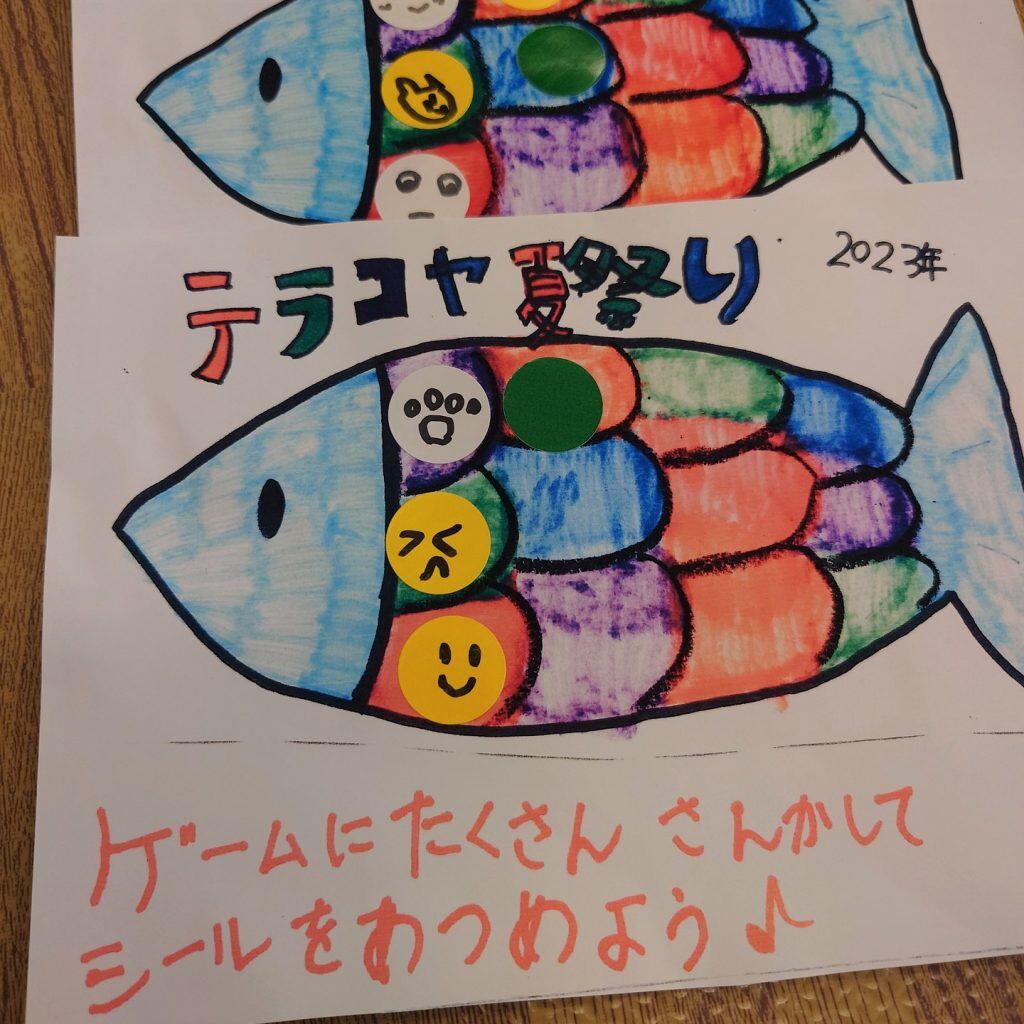 テラコヤ夏祭り 2023年
ゲームにたくさん さんかして
シールをあつめよう♪